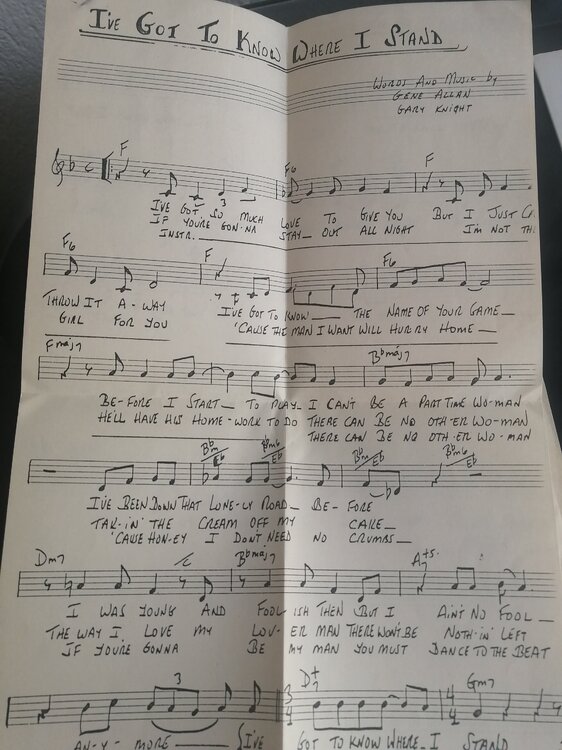 I'VE GOT TO KNOW WHERE I STAND
WORDS AND MUSIC by
GENE ALLAN
GARY KNIGHT
F F6 F
3
I'VE GOT SO MUCH LOVE TO GIVE YOU BUT I JUST
IF YOU'RE GON-NA STAY OUT ALL NIGHT I'M NOT
INSTR.
F6 F F6
THROW IT A-WAY I'VE GOT TO KNOW THE NAME OF YOUR GAME
GIRL FOR YOU 'CAUSE THE MAN I WANT WILL HURRY HOME
Fmaj7 Bbmaj7
BE-FORE I START TO PLAY I CAN'T BE A PART TIME WO-MAN
HE'LL HAVE HIS HOME-WORK TO DO THERE CAN BE NO OTH-ER WO-MAN
THERE CAN BE NO OTH-ER WO-MAN
Bbm/Eb Bbm6/Eb Bbm/Eb Bbm6/Eb
I'VE BEEN DOWN THAT LONE-LY ROAD BE-FORE
TAK-IN' THE CREAM OFF MY CAKE
'CAUSE HON-EY I DON'T NEED NO CRUMBS
Dm7 Bbmaj7 A7+5
I WAS YOUNG AND FOOL-ISH THEN BUT I AIN'T NO FOOL
THE WAY I LOVE MY LOV-ER MAN THERE WON'T BE NOTH-IN' LEFT
IF YOU'RE GONNA BE MY MAN YOU MUST DANCE TO THE BEAT
3 3/4 D+7 4/4 Gm7
AN-Y-MORE I'VE GOT TO KNOW WHERE I STAND